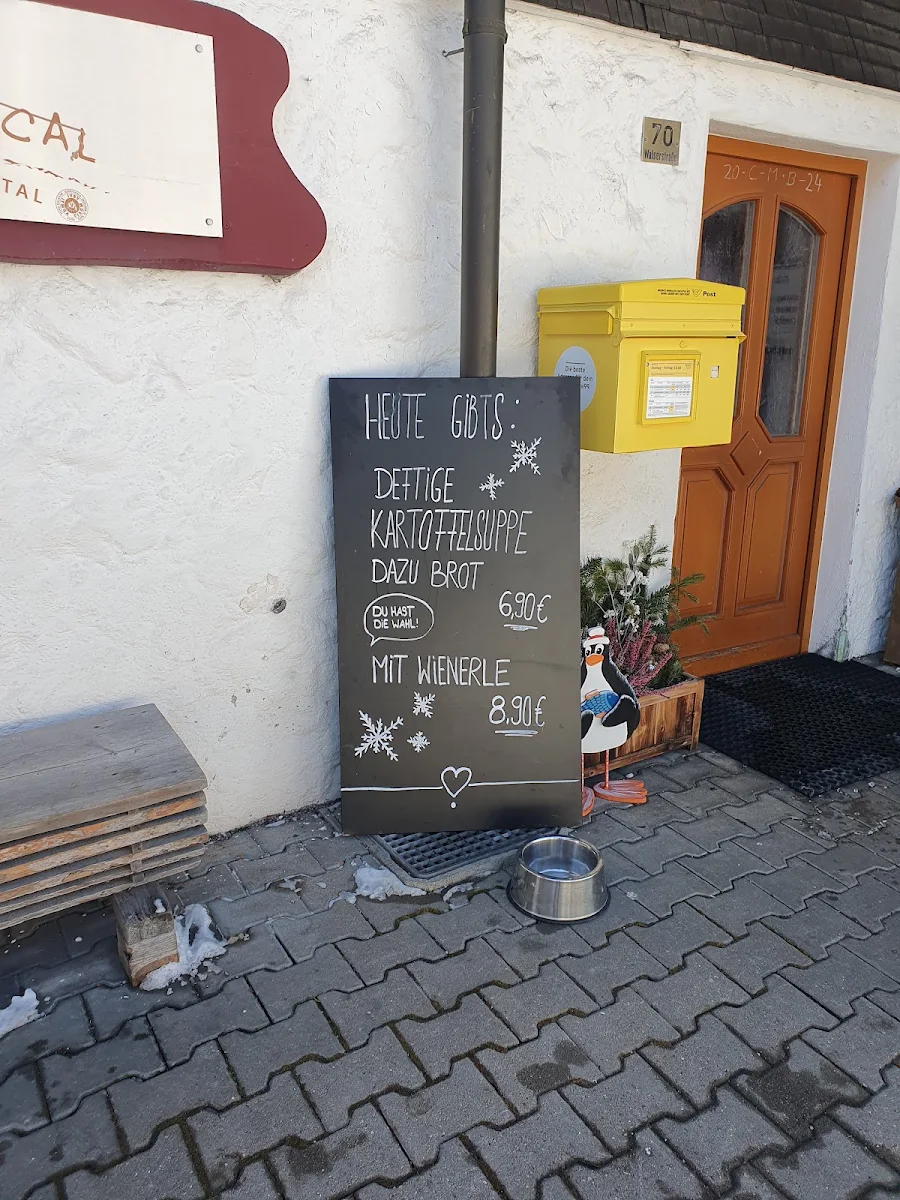 CAL
TAL
70
Walserstraße
20-C-M-B-24
Post
Die beste
HEUTE GIBTS:
DEFTIGE
KARTOFFELSUPPE
DAZU BROT
6,90€
DU HAST
DIE WAHL!
MIT WIENERLE
8,90€